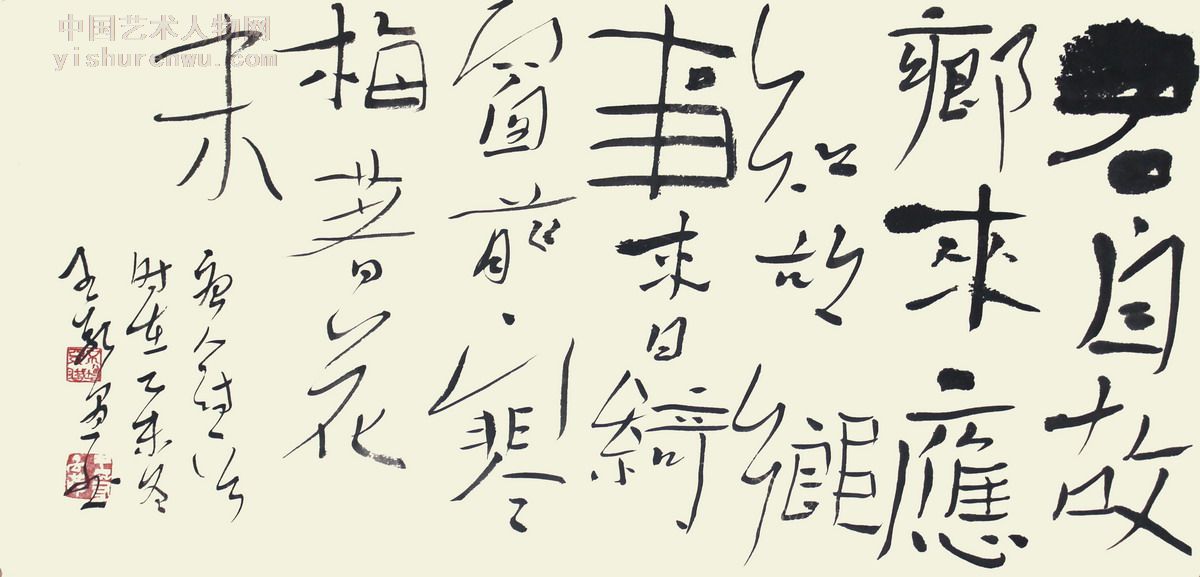 中国艺术人物网
yishurenwu.com
君自故
鄉來應
知故鄉
事來日綺
窗前寒
梅著花
未
唐人詩
时在乙未冬